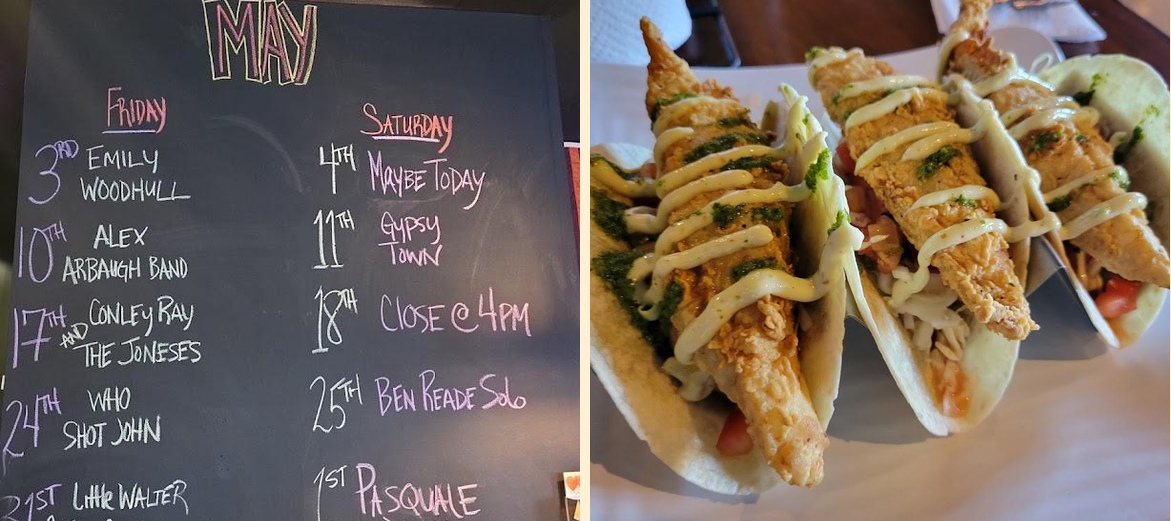 MAY
FRIDAY
3RD EMILY
WOODHULL
10TH ALEX
ARBAUGH BAND
17TH AND CONLEY RAY
THE JONESES
24TH WHO
SHOT JOHN
31ST Little WALTER
SATURDAY
4TH MAYBE TODAY
11TH GYPSY
TOWN
18TH CLOSE @ 4PM
25TH BEN READE Solo
1ST PASQUALE